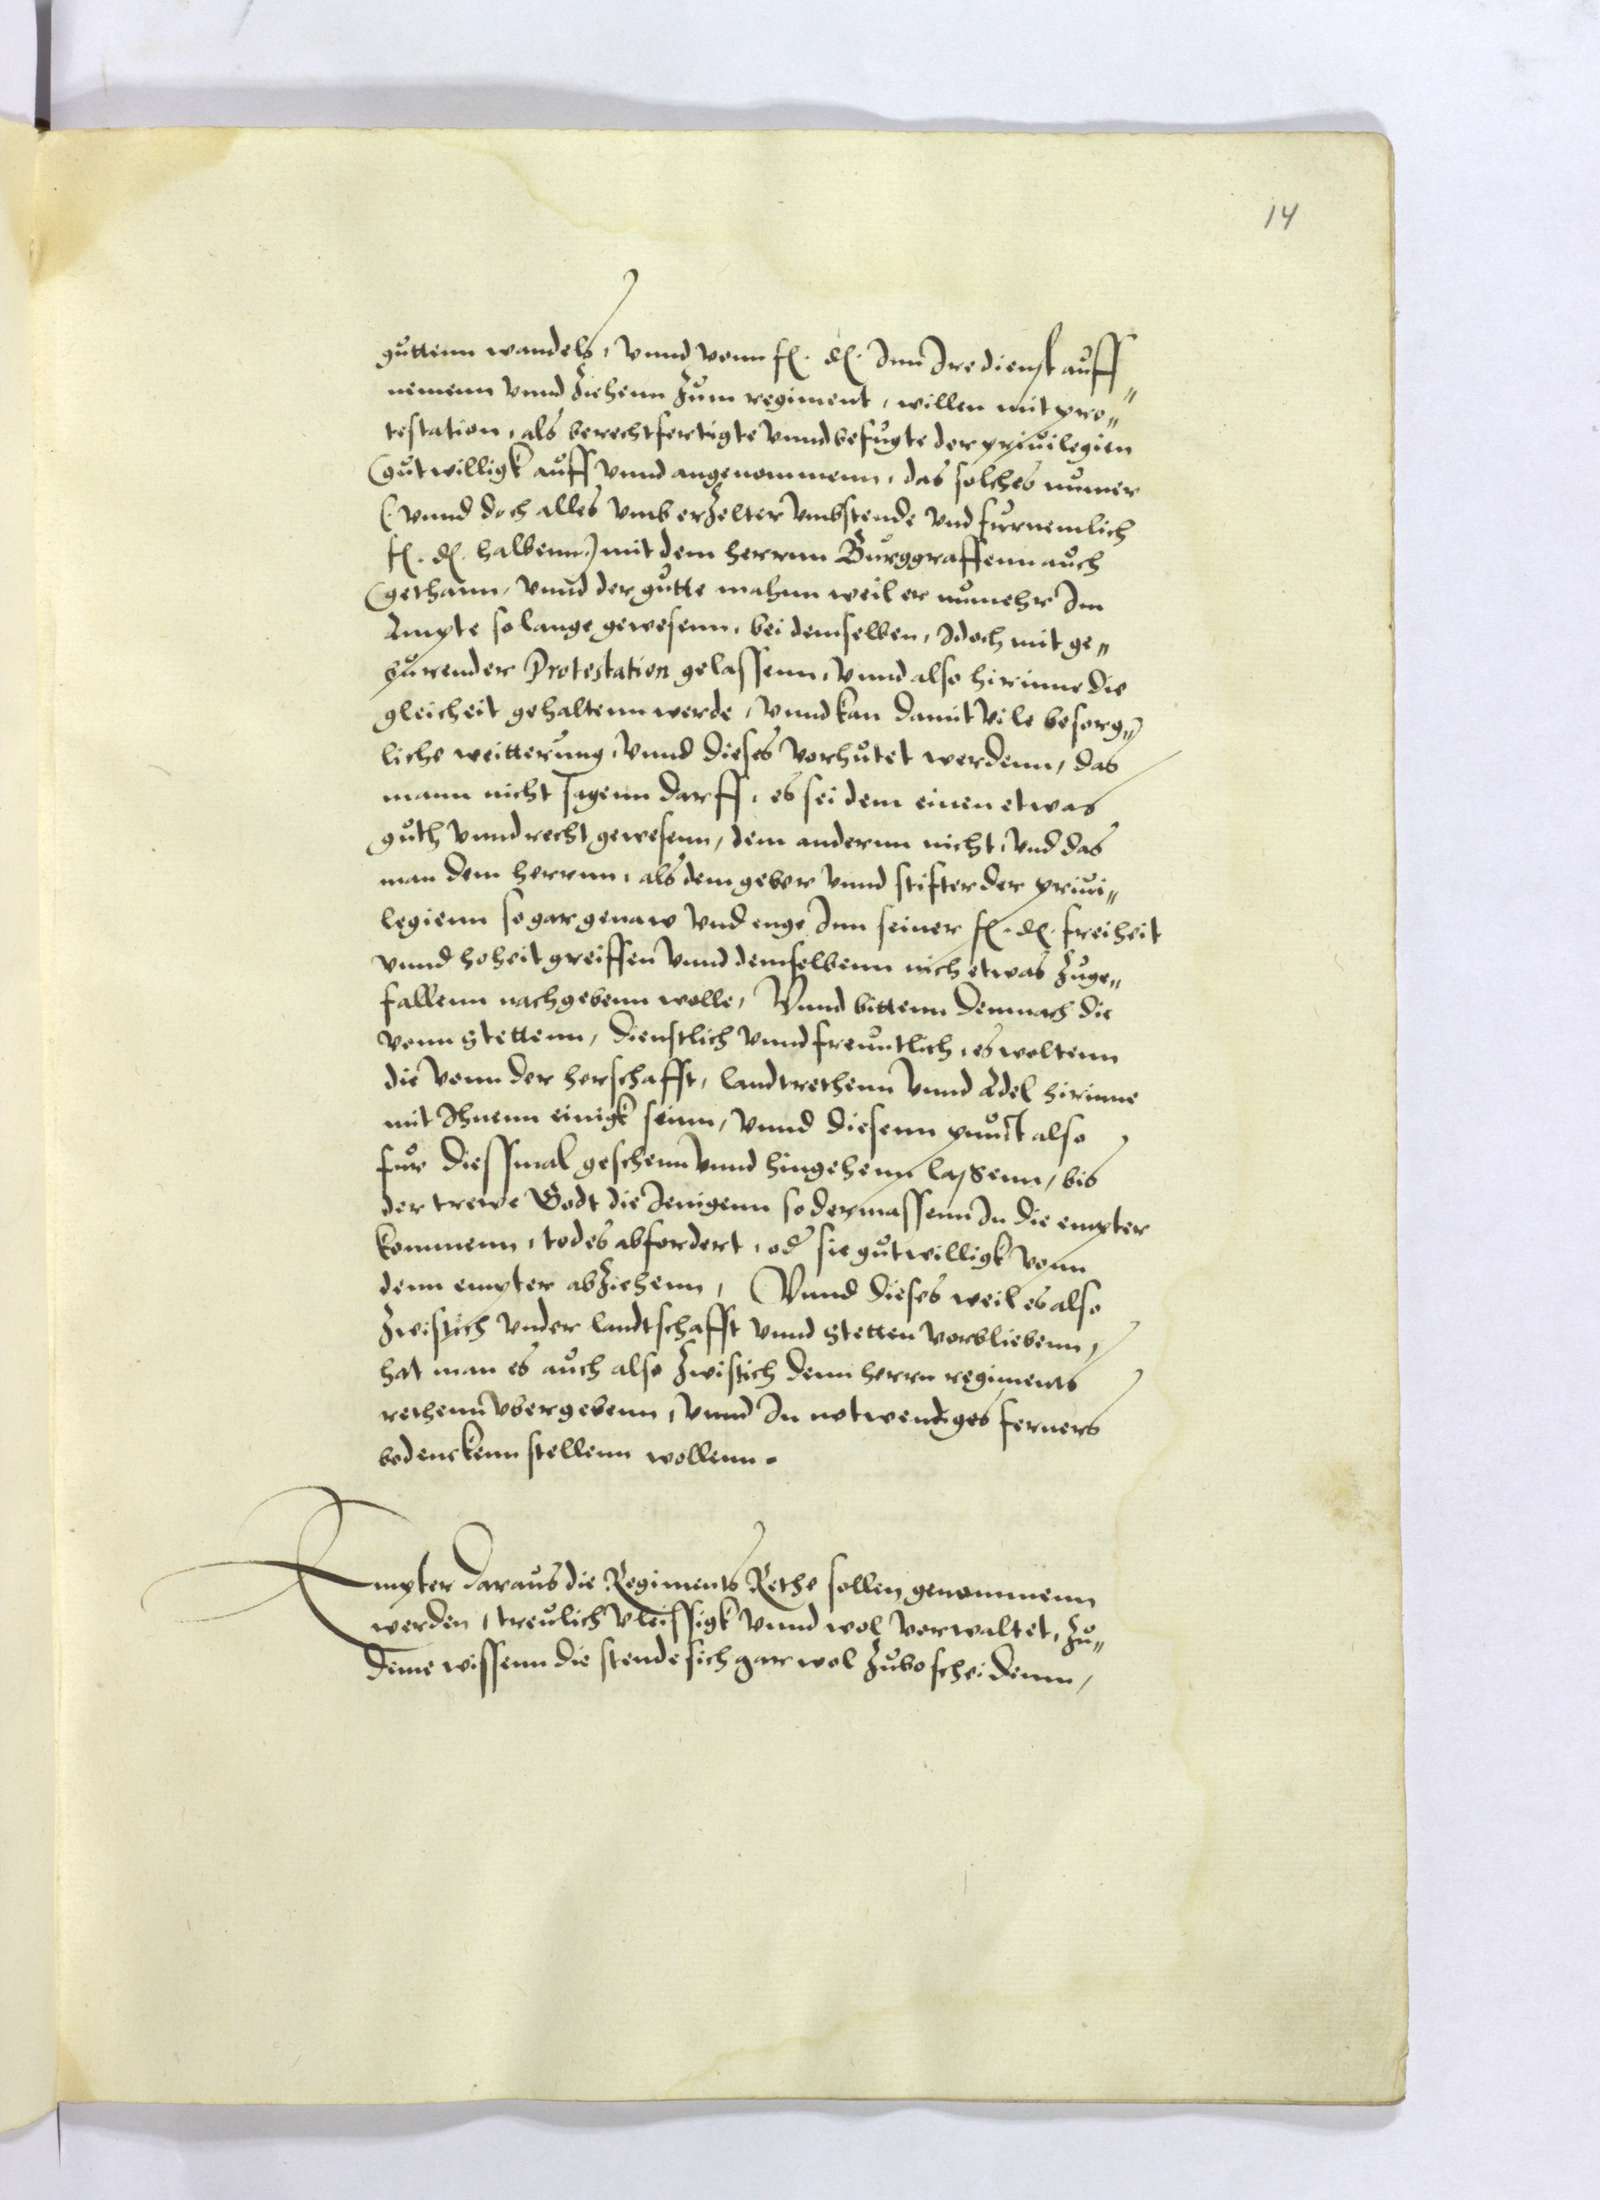 14
guttenn wandels, vnnd vonn f. d. Inn Ire dienst auff„
nemenn vnnd ziehenn zum regiment, willen mit pro„
testation, als berechtfertigte vnnd befugte der priuilegien
gutwilligk auff vnnd angenommenn, das solches numer
(vnnd doch alles vmb erzelter vmbstende vnd furnemlich
f. d. halbenn) mit dem herrnn Burggraffenn auch
gethann, vnnd der gutte mahnn weil er numehr Im
Ampte so lange gewesenn, bei demselben, Idoch mit ge„
burender Protestation gelassenn, vnnd also hirinne die
gleicheit gehaltenn werde, vnnd kan damit vile besorg„
liche weitterung, vnnd dieses vorhutet werdenn, das
mann nicht sagenn darff, es sei dem einen etwas
guth vnnd recht gewesenn, dem andernn nicht, vnd das
man dem herrnn, als dem geber vnnd stifter der priui„
legienn so gar genaw vnd enge Inn seiner f. d. freiheit
vnnd hoheit greiffen vnnd demselbenn nich etwas zuge„
fallenn nachgebenn wolle, Vnnd bittenn demnach die
vonn Stettenn, dienstlich vnnd freuntlich, es woltenn
die vonn der herschafft, landtrethenn vnnd Adel hirinne
mit Ihnenn einigk seinn, vnnd diesenn punct also
fur diessmal geschenn vnnd hingehenn laßenn, bis
der trewe Godt die Jenigenn so dermassenn In die empter
kommenn, todes abfordert, od sie gutwilligk vonn
denn empter abziehenn, Vnnd dieses weil es also
zwistich vnder landtschafft vnnd Stetten vorbliebenn,
hat man es auch also zwistich denn herrn regiments
rethenn vbergebenn, vnnd In notwendiges ferners
bedenckenn stellenn wollenn.
Empter daraus die Regiments Rethe sollen genommenn
werden, treulich vleissigk vnnd wol vorwaltet, zu„
deme wissenn die stende sich gar wol zubescheidenn,